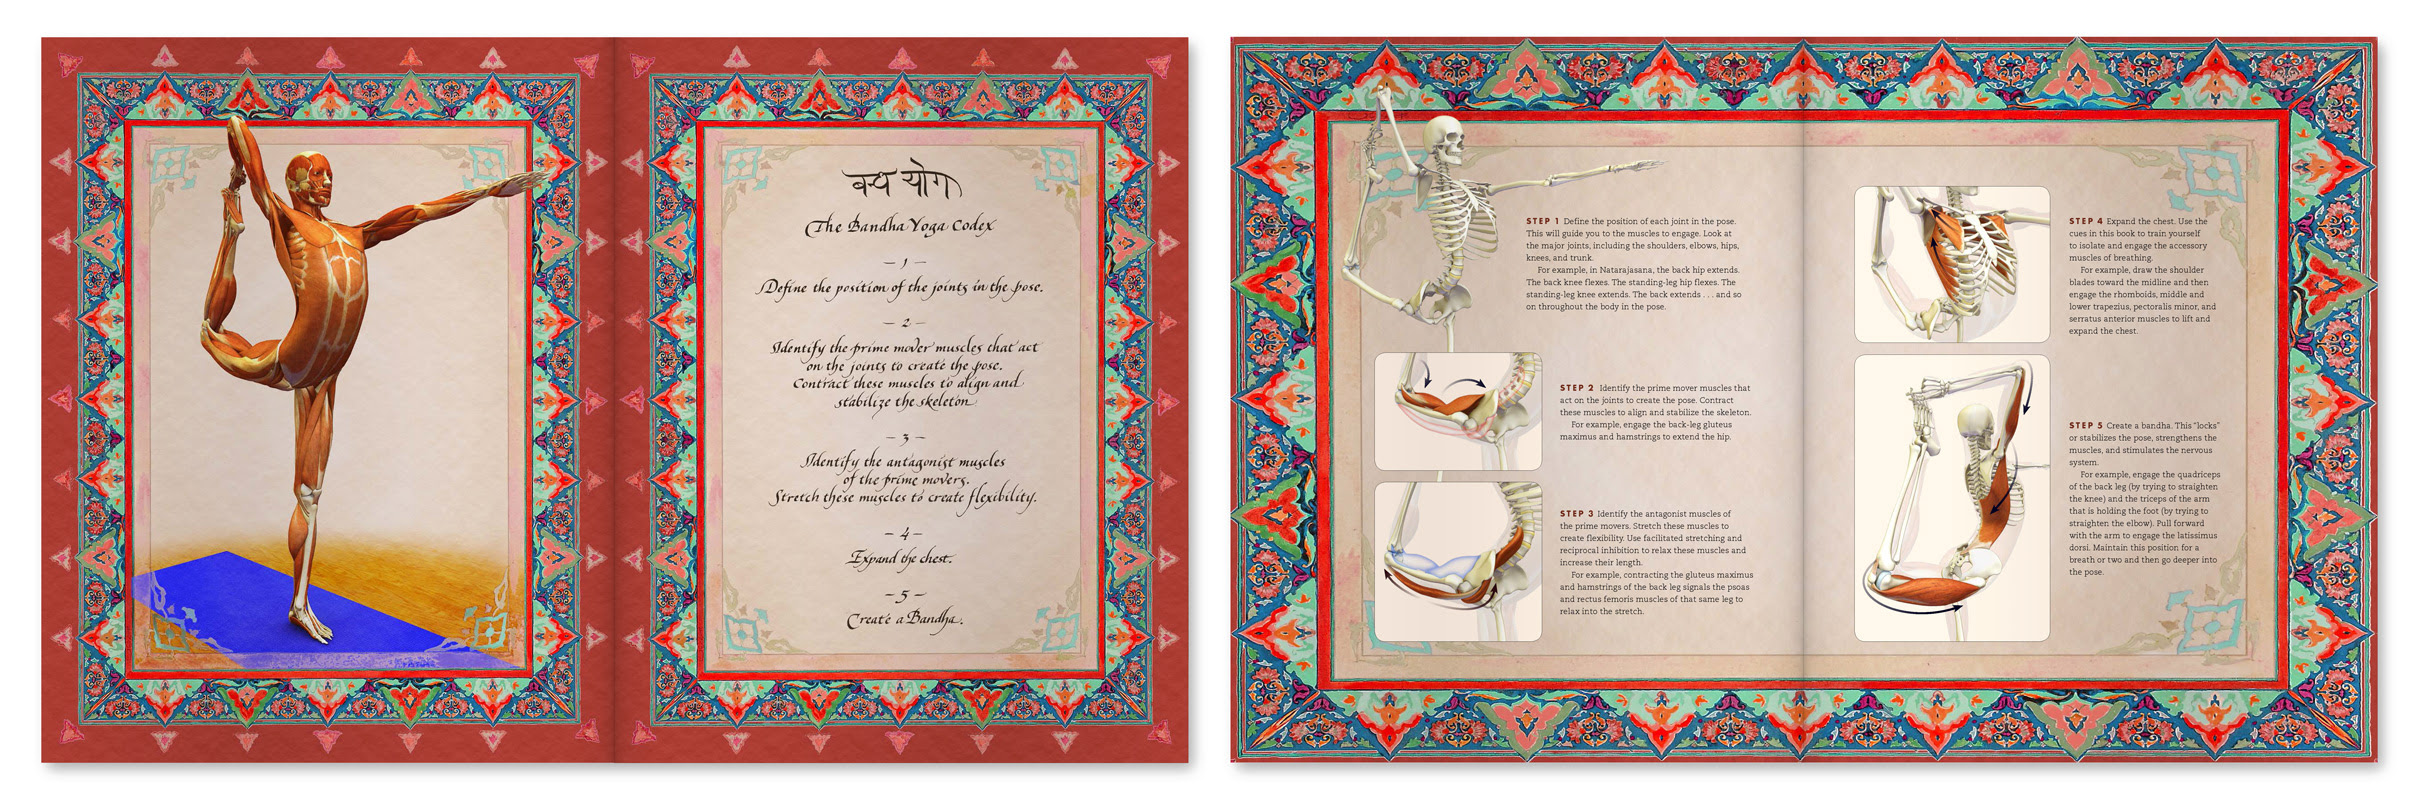 बन्ध योग
The Bandha Yoga Codex
– 1 –
Define the position of the joints in the pose.
– 2 –
Identify the prime mover muscles that act
on the joints to create the pose.
Contract these muscles to align and
stabilize the skeleton.
– 3 –
Identify the antagonist muscles
of the prime movers.
Stretch these muscles to create flexibility.
– 4 –
Expand the chest.
– 5 –
Create a Bandha.
STEP 1 Define the position of each joint in the pose.
This will guide you to the muscles to engage. Look at
the major joints, including the shoulders, elbows, hips,
knees, and trunk.
For example, in Natarajasana, the back hip extends.
The back knee flexes. The standing-leg hip flexes. The
standing-leg knee extends. The back extends . . . and so
on throughout the body in the pose.
STEP 2 Identify the prime mover muscles that
act on the joints to create the pose. Contract
these muscles to align and stabilize the skeleton.
For example, engage the back-leg gluteus
maximus and hamstrings to extend the hip.
STEP 3 Identify the antagonist muscles of
the prime movers. Stretch these muscles to
create flexibility. Use facilitated stretching and
reciprocal inhibition to relax these muscles and
increase their length.
For example, contracting the gluteus maximus
and hamstrings of the back leg signals the psoas
and rectus femoris muscles of that same leg to
relax into the stretch.
STEP 4 Expand the chest. Use the
cues in this book to train yourself
to isolate and engage the accessory
muscles of breathing.
For example, draw the shoulder
blades toward the midline and then
engage the rhomboids, middle and
lower trapezius, pectoralis minor, and
serratus anterior muscles to lift and
expand the chest.
STEP 5 Create a bandha. This "locks"
or stabilizes the pose, strengthens the
muscles, and stimulates the nervous
system.
For example, engage the quadriceps
of the back leg (by trying to straighten
the knee) and the triceps of the arm
that is holding the foot (by trying to
straighten the elbow). Pull forward
with the arm to engage the latissimus
dorsi. Maintain this position for a
breath or two and then go deeper into
the pose.